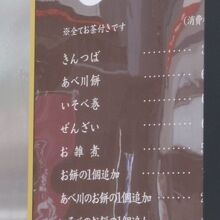 (消費
※全てお茶付きです
きんつば ………
あべ川餅 ………
いそべ巻 ………
ぜんざい ………
お雑煮 ………
お餅の1個追加 ……
あべ川のお餅の1個追加 …
のお餅の1個追加